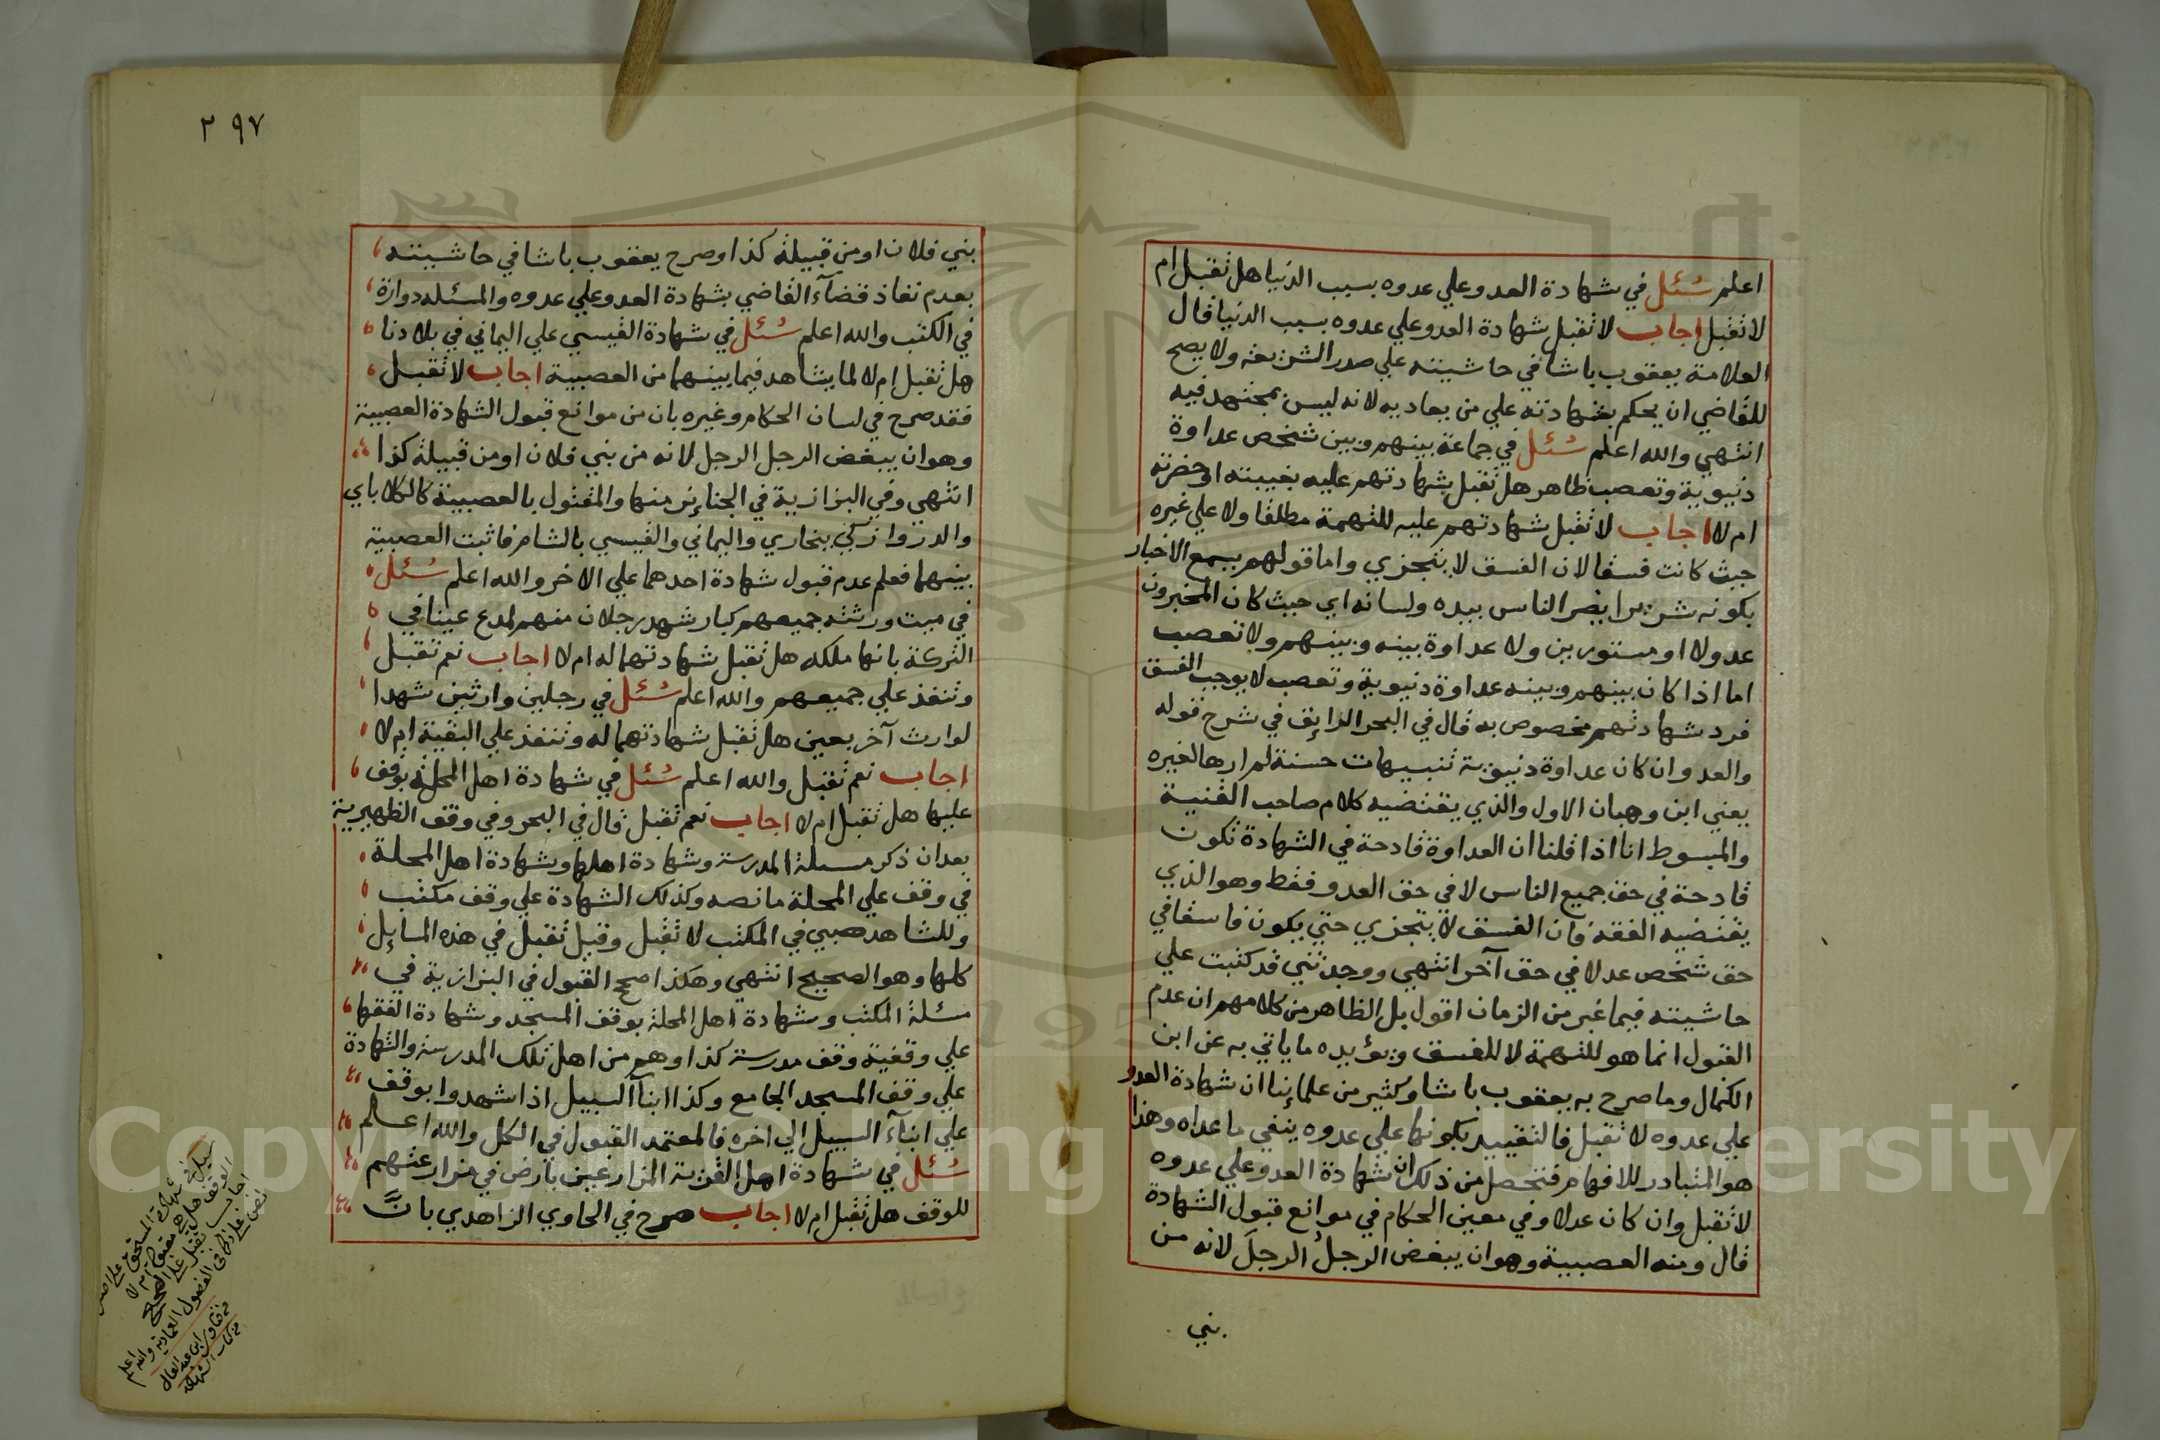 اعلم سُئل في شهادة العدو علي عدوه بسبب الدنيا هل تقبل ام
لا تقبل اجاب لا تقبل شهادة العدو علي عدوه بسبب الدنيا قال
العلامة يعقوب باشا في حاشيته علي صدر الشريعة ولا يصح
للقاضي ان يحكم بشهادته علي من يعاديه لانه ليس بمجتهد فيه
انتهي والله اعلم سُئل في جماعة بينهم وبين شخص عداوة
دنيوية وتعصب ظاهر هل تقبل شهادتهم عليه بغيبته او حضرته
ام لا اجاب لا تقبل شهادتهم عليه للتهمة مطلقا ولا علي غيره
حيث كانت فسقا لان الفسق لا يتجزي واما قولهم بسمع الاخبار
بكونه شريرا يضر الناس بيده ولسانه اي حيث كان المخبرون
عدولا او مستورين ولا عداوة بينه وبينهم ولا تعصب
اما اذا كان بينهم وبينه عداوة دنيوية وتعصب لا يوجب الفسق
فرد شهادتهم مخصوص به قال في البحر الرايق في شرح قوله
والعدو ان كان عداوة دنيوية تنبيهات حسنة لم ارها لغيره
يعني ابن وهبان الاول والذي يقتضيه كلام صاحب القنية
والمبسوط انا اذا قلنا ان العداوة قادحة في الشهادة تكون
قادحة في حق جميع الناس لا في حق العدو فقط وهو الذي
يقتضيه الفقه فان الفسق لا يتجزي حتي يكون فاسقا في
حق شخص عدلا في حق آخر انتهي ووجدتني قد كتبت علي
حاشيته فيما غبر من الزمان اقول بل الظاهر من كلامهم ان عدم
القبول انما هو للتهمة لا للفسق ويؤيده ما ياتي به عن ابن
الكمال وما صرح به يعقوب باشا وكثير من علمائنا ان شهادة العدو
علي عدوه لا تقبل فالتقييد بكونها علي عدوه ينفي ما عداه وهذا
هو المتبادر للافهام فتحصل من ذلك ان شهادة العدو علي عدوه
لا تقبل وان كان عدلا وفي معين الحكام في موانع قبول الشهادة
قال ومنه العصبية وهو ان يبغض الرجلُ الرجلَ لانه من
بني
٢٩٧
بني فلان او من قبيلة كذا وصرح يعقوب باشا في حاشيته
بعدم نفاذ قضآء القاضي بشهادة العدو علي عدوه والمسئله دوارة
في الكتب والله اعلم سُئل في شهادة القيسي علي اليماني في بلادنا
هل تقبل ام لا لما يشاهد فيما بينهما من العصبية اجاب لا تقبل
فقد صرح في لسان الحكام وغيره بان من موانع قبول الشهادة العصبية
وهو ان يبغض الرجل الرجل لانه من بني فلان او من قبيلة كذا
انتهي وفي البزازية في الجنايز منها والمقتول بالعصبية كالكلاباي
والدروازكي ببخاري واليماني والقيسي بالشام فاثبت العصبية
بينهما فعلم عدم قبول شهادة احدهما علي الاخر والله اعلم سُئل
في ميت ورثته جميعهم كبار شهد رجلان منهم لمدع عينا في
التركة بانها ملكه هل تقبل شهادتهما له ام لا اجاب نعم تقبل
وتنفذ علي جميعهم والله اعلم سُئل في رجلين وارثين شهدا
لوارث آخر بعين هل تقبل شهادتهما له وتنفذ علي البقية ام لا
اجاب نعم تقبل والله اعلم سُئل في شهادة اهل المحلة بوقف
عليها هل تقبل ام لا اجاب نعم تقبل قال في البحر وفي وقف الظهيرية
بعد ان ذكر مسئلة المدرسة وشهادة اهلها وشهادة اهل المحلة
في وقف علي المحلة ما نصه وكذلك الشهادة علي وقف مكتب
وللشاهد صبي في المكتب لا تقبل وقيل تقبل في هذه المسايل
كلها وهو الصحيح انتهي وهكذا صحح القبول في البزازية في
مسئلة المكتب وشهادة اهل المحلة بوقف المسجد وشهادة الفقها
علي وقفية وقف مدرسة كذا وهم من اهل تلك المدرسة والشهادة
علي وقف المسجد الجامع وكذا ابنآ السبيل اذا شهدوا بوقف
علي ابنآء السبيل الي اخره فالمعتمد القبول في الكل والله اعلم
سُئل في شهادة اهل القرية المزارعين بارض في مزارعتهم
للوقف هل تقبل ام لا اجاب صرح في الحاوي الزاهدي بانَّ
سئل في شهادة المستحق علي اصل
الوقف هل هي مقبولة ام لا
اجاب تقبل علي الصحيح
نص علي ذلك في الفصول العمادية والله اعلم
من فتاوي ابن عبد العال
من كتاب الشهادة
Copyright © King Saud University
195